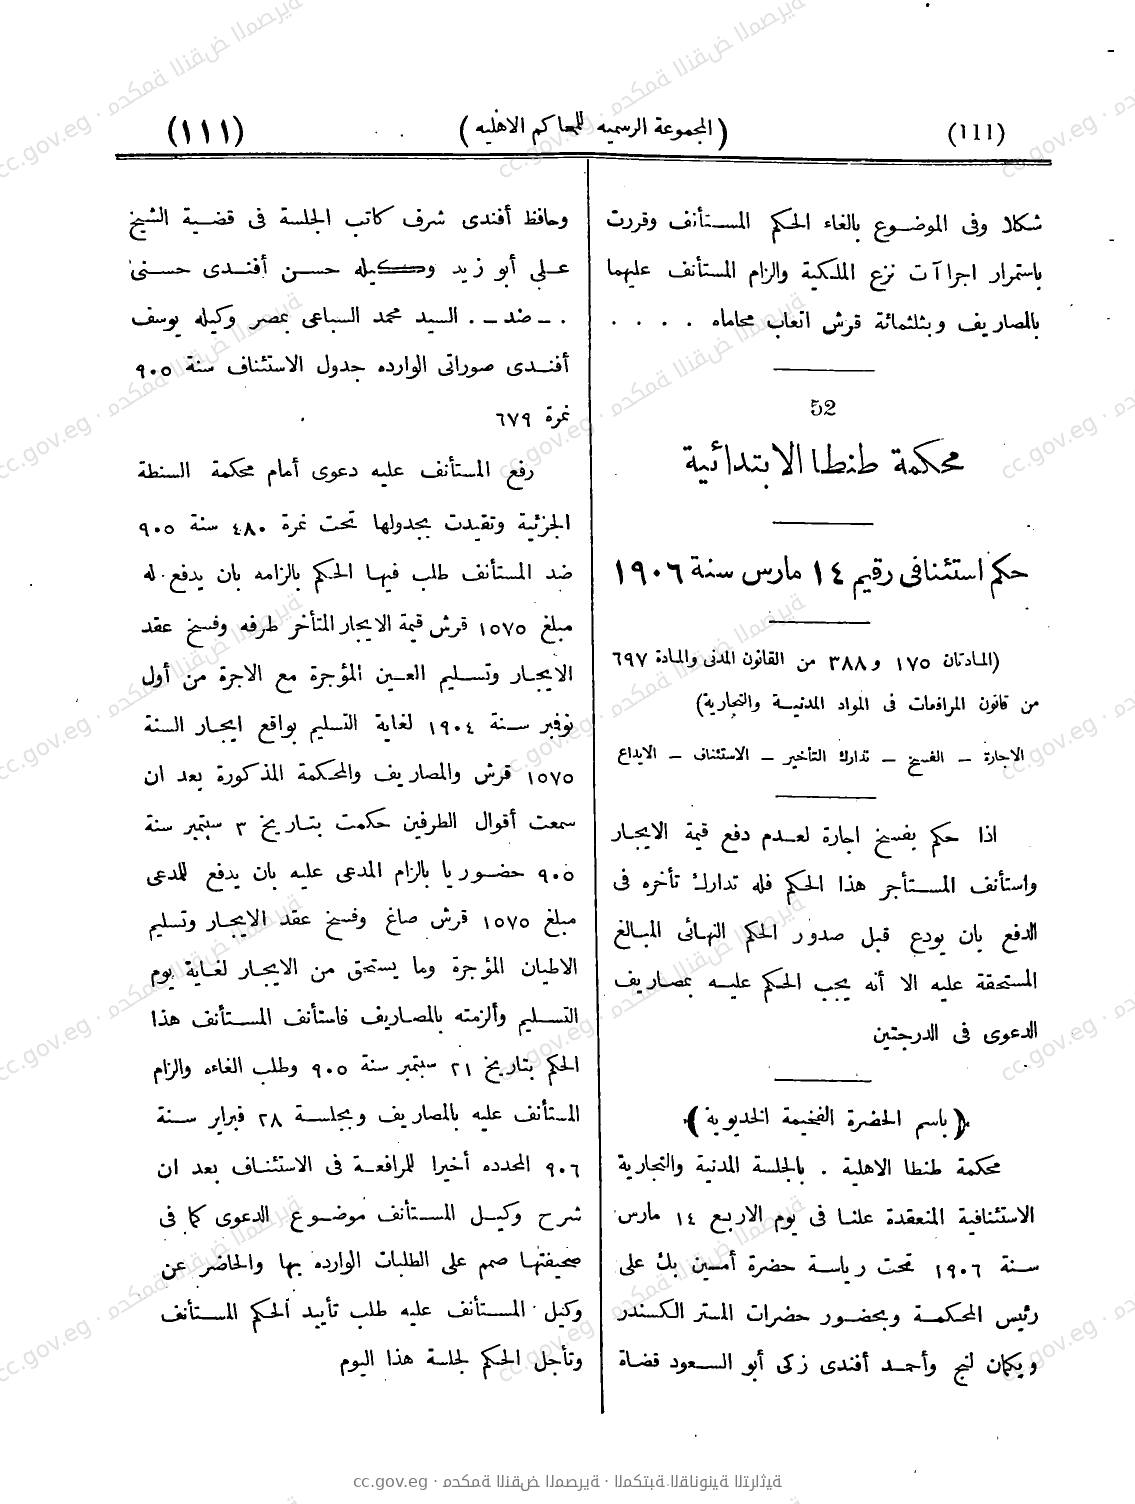 (١١١) (المجموعة الرسميه للمحاكم الاهليه) (١١١)
شكلا وفى الموضوع بالغاء الحكم المستأنف وقررت
باستمرار اجراآت نزع الملكية والزام المستأنف عليهما
بالمصاريف وبثلثمائة قرش اتعاب محاماه . . . .
52
محكمة طنطا الابتدائية
حكم استئنافى رقيم ١٤ مارس سنة ١٩٠٦
(المادتان ١٧٥ و٣٨٨ من القانون المدنى والمادة ٦٩٧
من قانون المرافعات فى المواد المدنية والتجارية)
الاجارة – الفسخ – تدارك التأخير – الاستئناف – الايداع
اذا حكم بفسخ اجارة لعدم دفع قيمة الايجار
واستأنف المستأجر هذا الحكم فله تدارك تأخره فى
الدفع بان يودع قبل صدور الحكم النهائى المبالغ
المستحقة عليه الا أنه يجب الحكم عليه بمصاريف
الدعوى فى الدرجتين
(باسم الحضرة الفخيمة الخديوية)
محكمة طنطا الاهلية . بالجلسة المدنية والتجارية
الاستئنافية المنعقدة علنا فى يوم الاربع ١٤ مارس
سنة ١٩٠٦ تحت رياسة حضرة أمين بك على
رئيس المحكمة وبحضور حضرات المستر الكسندر
ويكمان لنج وأحمد أفندى زكى أبو السعود قضاة
وحافظ أفندى شرف كاتب الجلسة فى قضية الشيخ
على أبو زيد وكيله حسن أفندى حسنى
. – ضد – . السيد محمد السباعى بمصر وكيله يوسف
أفندى صوراتى الوارده جدول الاستئناف سنة ٩٠٥
نمرة ٦٧٩
رفع المستأنف عليه دعوى أمام محكمة السنطة
الجزئية وتقيدت بجدولها تحت نمرة ٤٨٠ سنة ٩٠٥
ضد المستأنف طلب فيها الحكم بالزامه بان يدفع له
مبلغ ١٥٧٥ قرش قيمة الايجار المتأخر طرفه وفسخ عقد
الايجار وتسليم العين المؤجرة مع الاجرة من أول
نوفبر سنة ١٩٠٤ لغاية التسليم بواقع ايجار السنة
١٥٧٥ قرش والمصاريف والمحكمة المذكورة بعد ان
سمعت أقوال الطرفين حكمت بتاريخ ٣ سبتمبر سنة
٩٠٥ حضوريا بالزام المدعى عليه بان يدفع للمدعى
مبلغ ١٥٧٥ قرش صاغ وفسخ عقد الايجار وتسليم
الاطيان المؤجرة وما يستحق من الايجار لغاية يوم
التسليم وألزمته بالمصاريف فاستأنف المستأنف هذا
الحكم بتاريخ ٢١ سبتمبر سنة ٩٠٥ وطلب الغاءه والزام
المستأنف عليه بالمصاريف وبجلسة ٢٨ فبراير سنة
٩٠٦ المحدده أخيرا للمرافعة فى الاستئناف بعد ان
شرح وكيل المستأنف موضوع الدعوى كما فى
صحيفتها صمم على الطلبات الوارده بها والحاضر عن
وكيل المستأنف عليه طلب تأييد الحكم المستأنف
وتأجل الحكم لجلسة هذا اليوم
cc.gov.eg · محكمة النقض المصرية · المكتبة القانونية التراثية